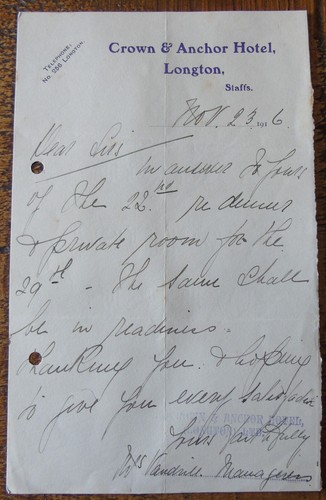 TELEPHONE:
No. 286 LONGTON.
Crown & Anchor Hotel,
Longton,
Staffs.
Nov. 23 1916.
Dear Sir
in answer to yours
of the 22nd re dinner
& private room for the
29th - The same shall
be in readiness.
Thanking you & hoping
to give you every satisfaction
CROWN & ANCHOR HOTEL,
LONGTON
Yours faithfully
Mrs Manageress